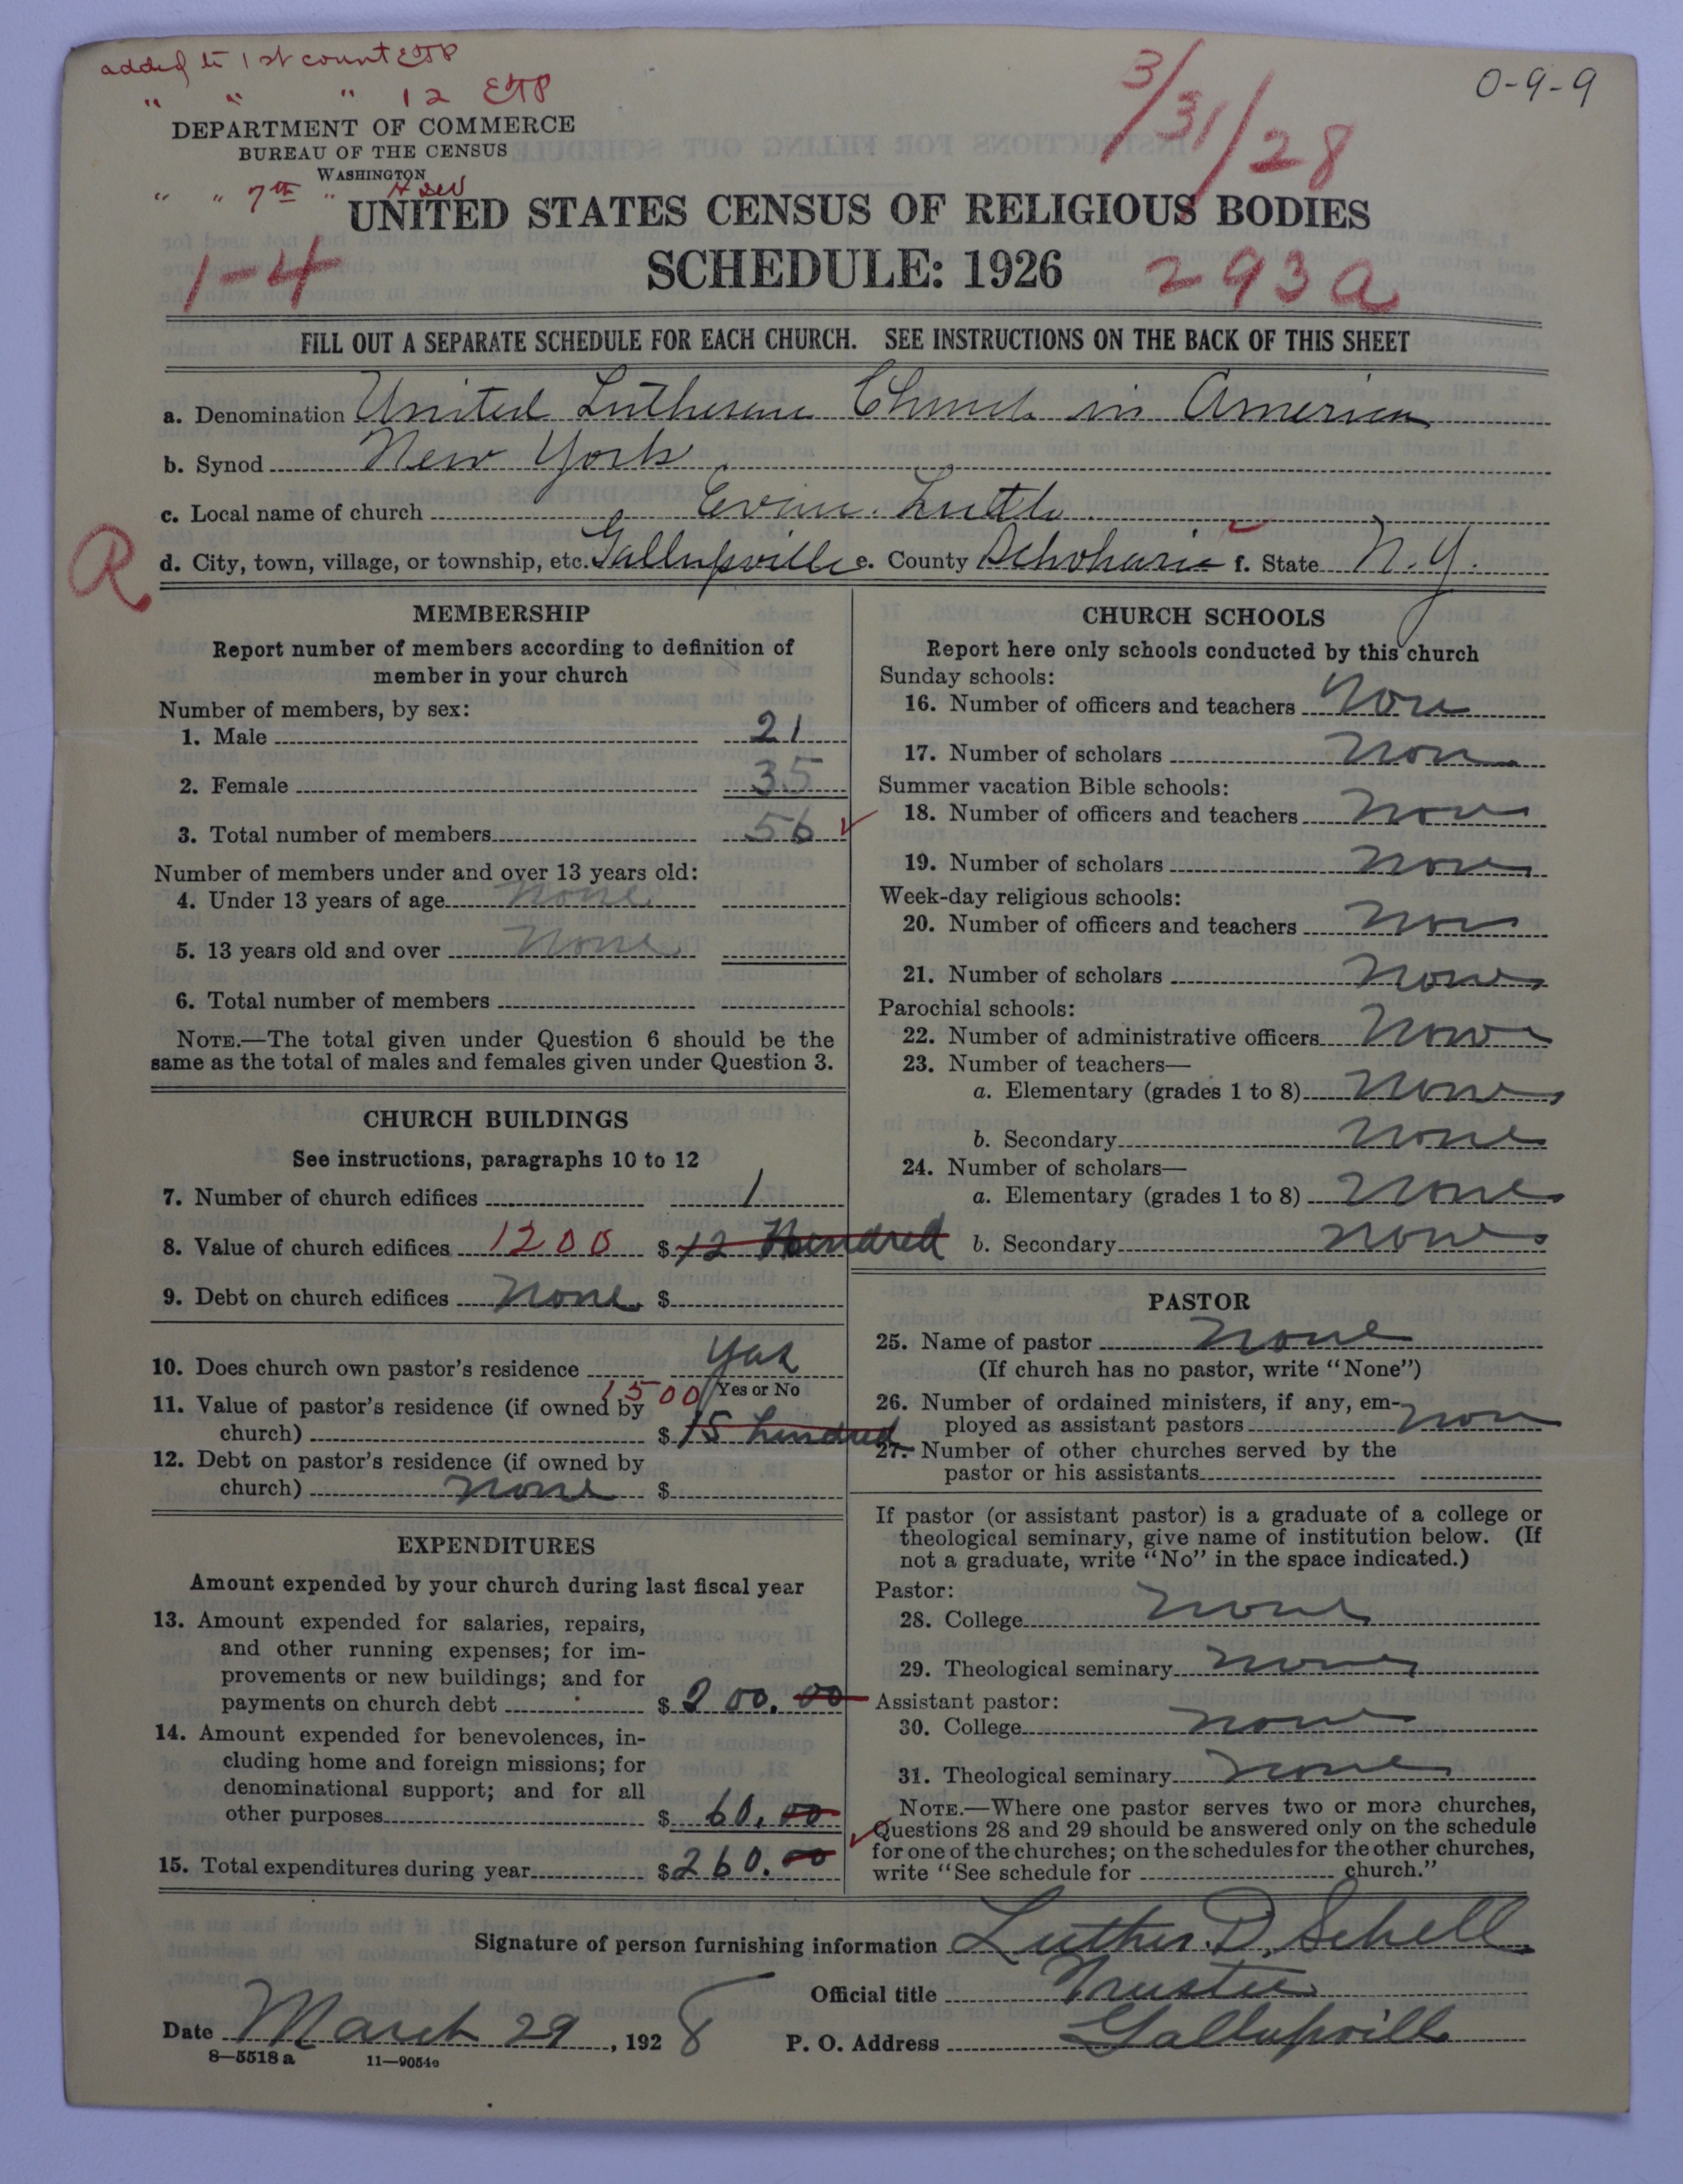 added to 1st count ETP
" " " 12 ETP
3/31/28
0-9-9
DEPARTMENT OF COMMERCE
BUREAU OF THE CENSUS
WASHINGTON
" " 7th "
UNITED STATES CENSUS OF RELIGIOUS BODIES
1-4
SCHEDULE: 1926
293a
FILL OUT A SEPARATE SCHEDULE FOR EACH CHURCH. SEE INSTRUCTIONS ON THE BACK OF THIS SHEET
a. Denomination United Lutheran Church in America
b. Synod New York
c. Local name of church Evan. Luth
R
d. City, town, village, or township, etc. Gallupville e. County Schoharie f. State N.Y.
MEMBERSHIP
Report number of members according to definition of
member in your church
Number of members, by sex:
1. Male 21
2. Female 35
3. Total number of members 56
Number of members under and over 13 years old:
4. Under 13 years of age None
5. 13 years old and over None
6. Total number of members
NOTE.—The total given under Question 6 should be the
same as the total of males and females given under Question 3.
CHURCH BUILDINGS
See instructions, paragraphs 10 to 12
7. Number of church edifices 1
8. Value of church edifices 1200 $ 12 Hundred
9. Debt on church edifices None $
10. Does church own pastor's residence Yas
Yes or No
11. Value of pastor's residence (if owned by 1500
church) $ 15 hundred
12. Debt on pastor's residence (if owned by
church) None $
EXPENDITURES
Amount expended by your church during last fiscal year
13. Amount expended for salaries, repairs,
and other running expenses; for im-
provements or new buildings; and for
payments on church debt $ 200.00
14. Amount expended for benevolences, in-
cluding home and foreign missions; for
denominational support; and for all
other purposes $ 60.00
15. Total expenditures during year $ 260.00
CHURCH SCHOOLS
Report here only schools conducted by this church
Sunday schools:
16. Number of officers and teachers None
17. Number of scholars None
Summer vacation Bible schools:
18. Number of officers and teachers None
19. Number of scholars None
Week-day religious schools:
20. Number of officers and teachers None
21. Number of scholars None
Parochial schools:
22. Number of administrative officers None
23. Number of teachers—
a. Elementary (grades 1 to 8) None
b. Secondary None
24. Number of scholars—
a. Elementary (grades 1 to 8) None
b. Secondary None
PASTOR
25. Name of pastor None
(If church has no pastor, write "None")
26. Number of ordained ministers, if any, em-
ployed as assistant pastors None
27. Number of other churches served by the
pastor or his assistants
If pastor (or assistant pastor) is a graduate of a college or
theological seminary, give name of institution below. (If
not a graduate, write "No" in the space indicated.)
Pastor:
28. College None
29. Theological seminary None
Assistant pastor:
30. College None
31. Theological seminary None
NOTE.—Where one pastor serves two or more churches,
Questions 28 and 29 should be answered only on the schedule
for one of the churches; on the schedules for the other churches,
write "See schedule for church."
Signature of person furnishing information Luther D. Schell
Official title Trustee
Date March 29, 1928 P. O. Address Gallupvill
8—5518 a 11—9054a